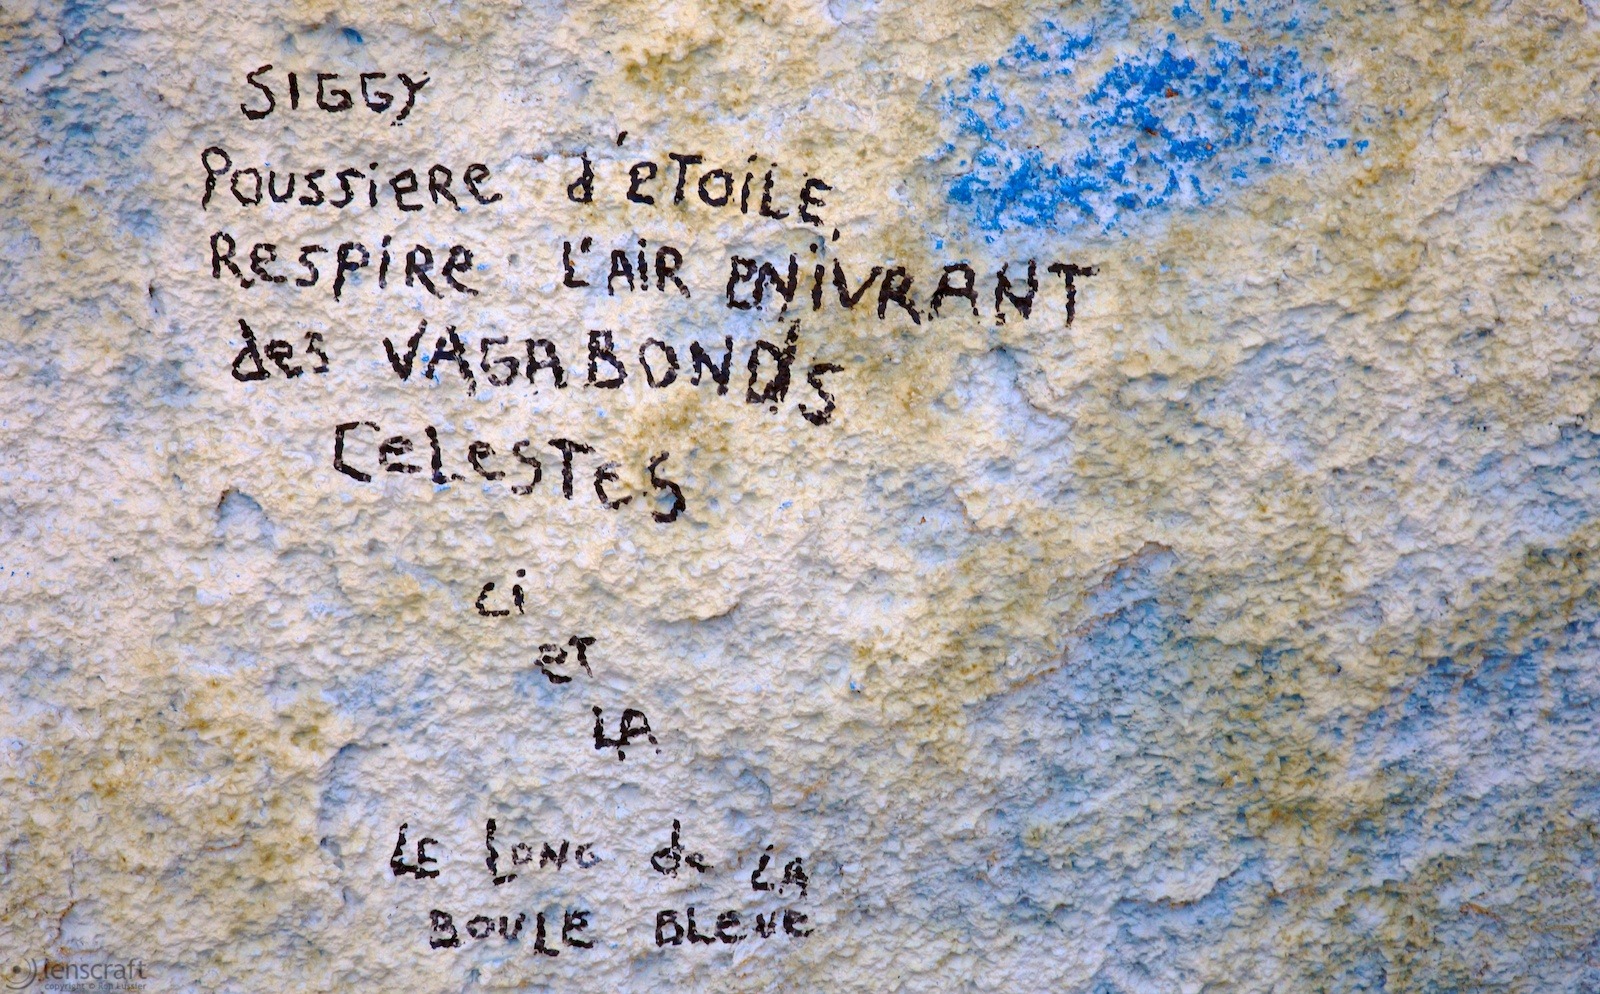 SIGGY
POUSSIERE d'ETOILE,
RESPIRE L'AIR ENIVRANT
des VAGABONdS
CELESTES
Ci
ET
LA
LE LONG de LA
BOULE BLEUE
lenscraft
copyright © Rob Lussier